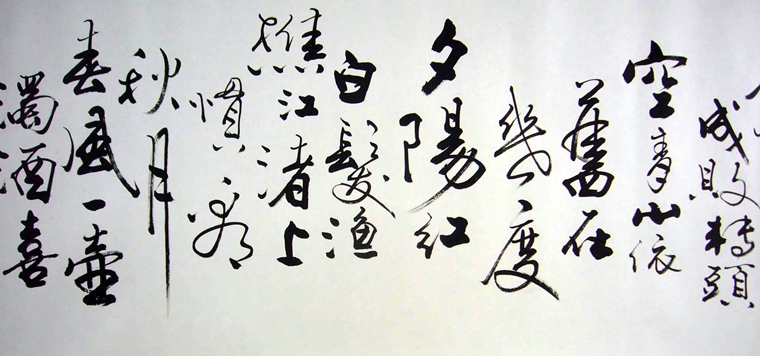 成敗轉頭
空青山依
舊在
幾度
夕陽紅
白髮漁
樵江渚上
慣看
秋月
春風一壺
濁酒喜